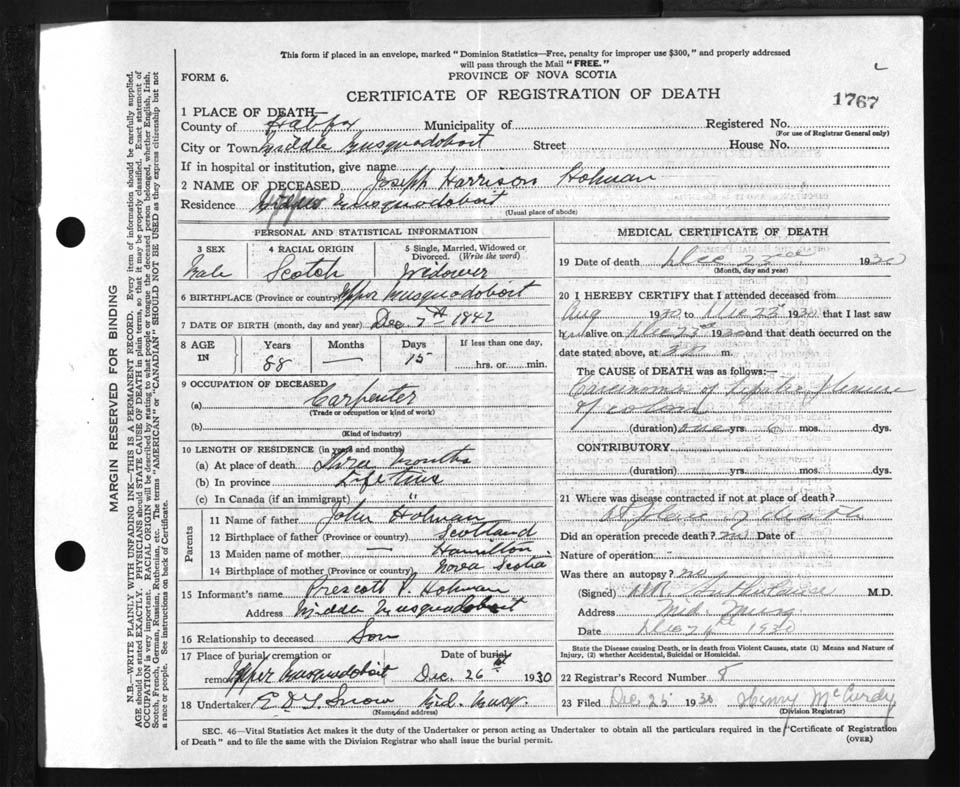 This form if placed in an envelope, marked "Dominion Statistics—Free, penalty for improper use $300," and properly addressed
will pass through the Mail "FREE."
FORM 6.
PROVINCE OF NOVA SCOTIA
CERTIFICATE OF REGISTRATION OF DEATH
1767
1 PLACE OF DEATH
County of Halifax Municipality of Registered No.
(For use of Registrar General only)
City or Town Middle Musquodoboit Street House No.
If in hospital or institution, give name
2 NAME OF DECEASED Joseph Harrison Holman
Residence Upper Musquodoboit
(Usual place of abode)
PERSONAL AND STATISTICAL INFORMATION
3 SEX 4 RACIAL ORIGIN 5 Single, Married, Widowed or
Divorced. (Write the word)
Male Scotch Widower
6 BIRTHPLACE (Province or country) Upper Musquodoboit
7 DATE OF BIRTH (month, day and year) Dec 7th 1842
8 AGE IN Years Months Days If less than one day,
88 — 15 hrs. or min.
9 OCCUPATION OF DECEASED
(a) Carpenter
(Trade or occupation or kind of work)
(b)
(Kind of industry)
10 LENGTH OF RESIDENCE (in years and months)
(a) At place of death months
(b) In province Life Time
(c) In Canada (if an immigrant) "
Parents
11 Name of father John Holman
12 Birthplace of father (Province or country) Scotland
13 Maiden name of mother — Hamilton
14 Birthplace of mother (Province or country) Nova Scotia
15 Informant's name Prescott P. Holman
Address Middle Musquodoboit
16 Relationship to deceased Son
17 Place of burial, cremation or Date of burial
removal Upper Musquodoboit Dec. 26th 1930
18 Undertaker Snow Mid. Musq.
(Name and address)
MEDICAL CERTIFICATE OF DEATH
19 Date of death Dec 23rd 1930
(Month, day and year)
20 I HEREBY CERTIFY that I attended deceased from
Aug 1930 to Dec 23rd 1930 that I last saw
h alive on Dec 23rd 1930 and that death occurred on
date stated above, at m.
The CAUSE of DEATH was as follows:—
Carcinoma of flexure
of colon
(duration) one yrs. mos. dys.
CONTRIBUTORY.
(duration) yrs. mos. dys.
21 Where was disease contracted if not at place of death?
At place of death
Did an operation precede death? no Date of
Nature of operation
Was there an autopsy? no
(Signed) M.D.
Address Mid. Musq
Date Dec 24th 1930
State the Disease causing Death, or in death from Violent Causes, state (1) Means and Nature of
Injury, (2) whether Accidental, Suicidal or Homicidal.
22 Registrar's Record Number 8
23 Filed Dec 25 1930 Henry McCurdy
(Division Registrar)
SEC. 46—Vital Statistics Act makes it the duty of the Undertaker or person acting as Undertaker to obtain all the particulars required in the "Certificate of Registration
of Death" and to file the same with the Division Registrar who shall issue the burial permit.
(OVER)
MARGIN RESERVED FOR BINDING
N.B.—WRITE PLAINLY WITH UNFADING INK—THIS IS A PERMANENT RECORD. Every item of information should be carefully supplied.
AGE should be stated EXACTLY. PHYSICIANS should STATE CAUSE OF DEATH in plain terms, so that it may be properly classified. Exact statement of
OCCUPATION is very important. RACIAL ORIGIN will be described by stating to what people or tongue the deceased person belonged, whether English, Irish,
Scotch, French, German, Russian, Ruthenian, etc. The terms "AMERICAN" or "CANADIAN" SHOULD NOT BE USED as they express citizenship but not
a race or people. See instructions on back of Certificate.